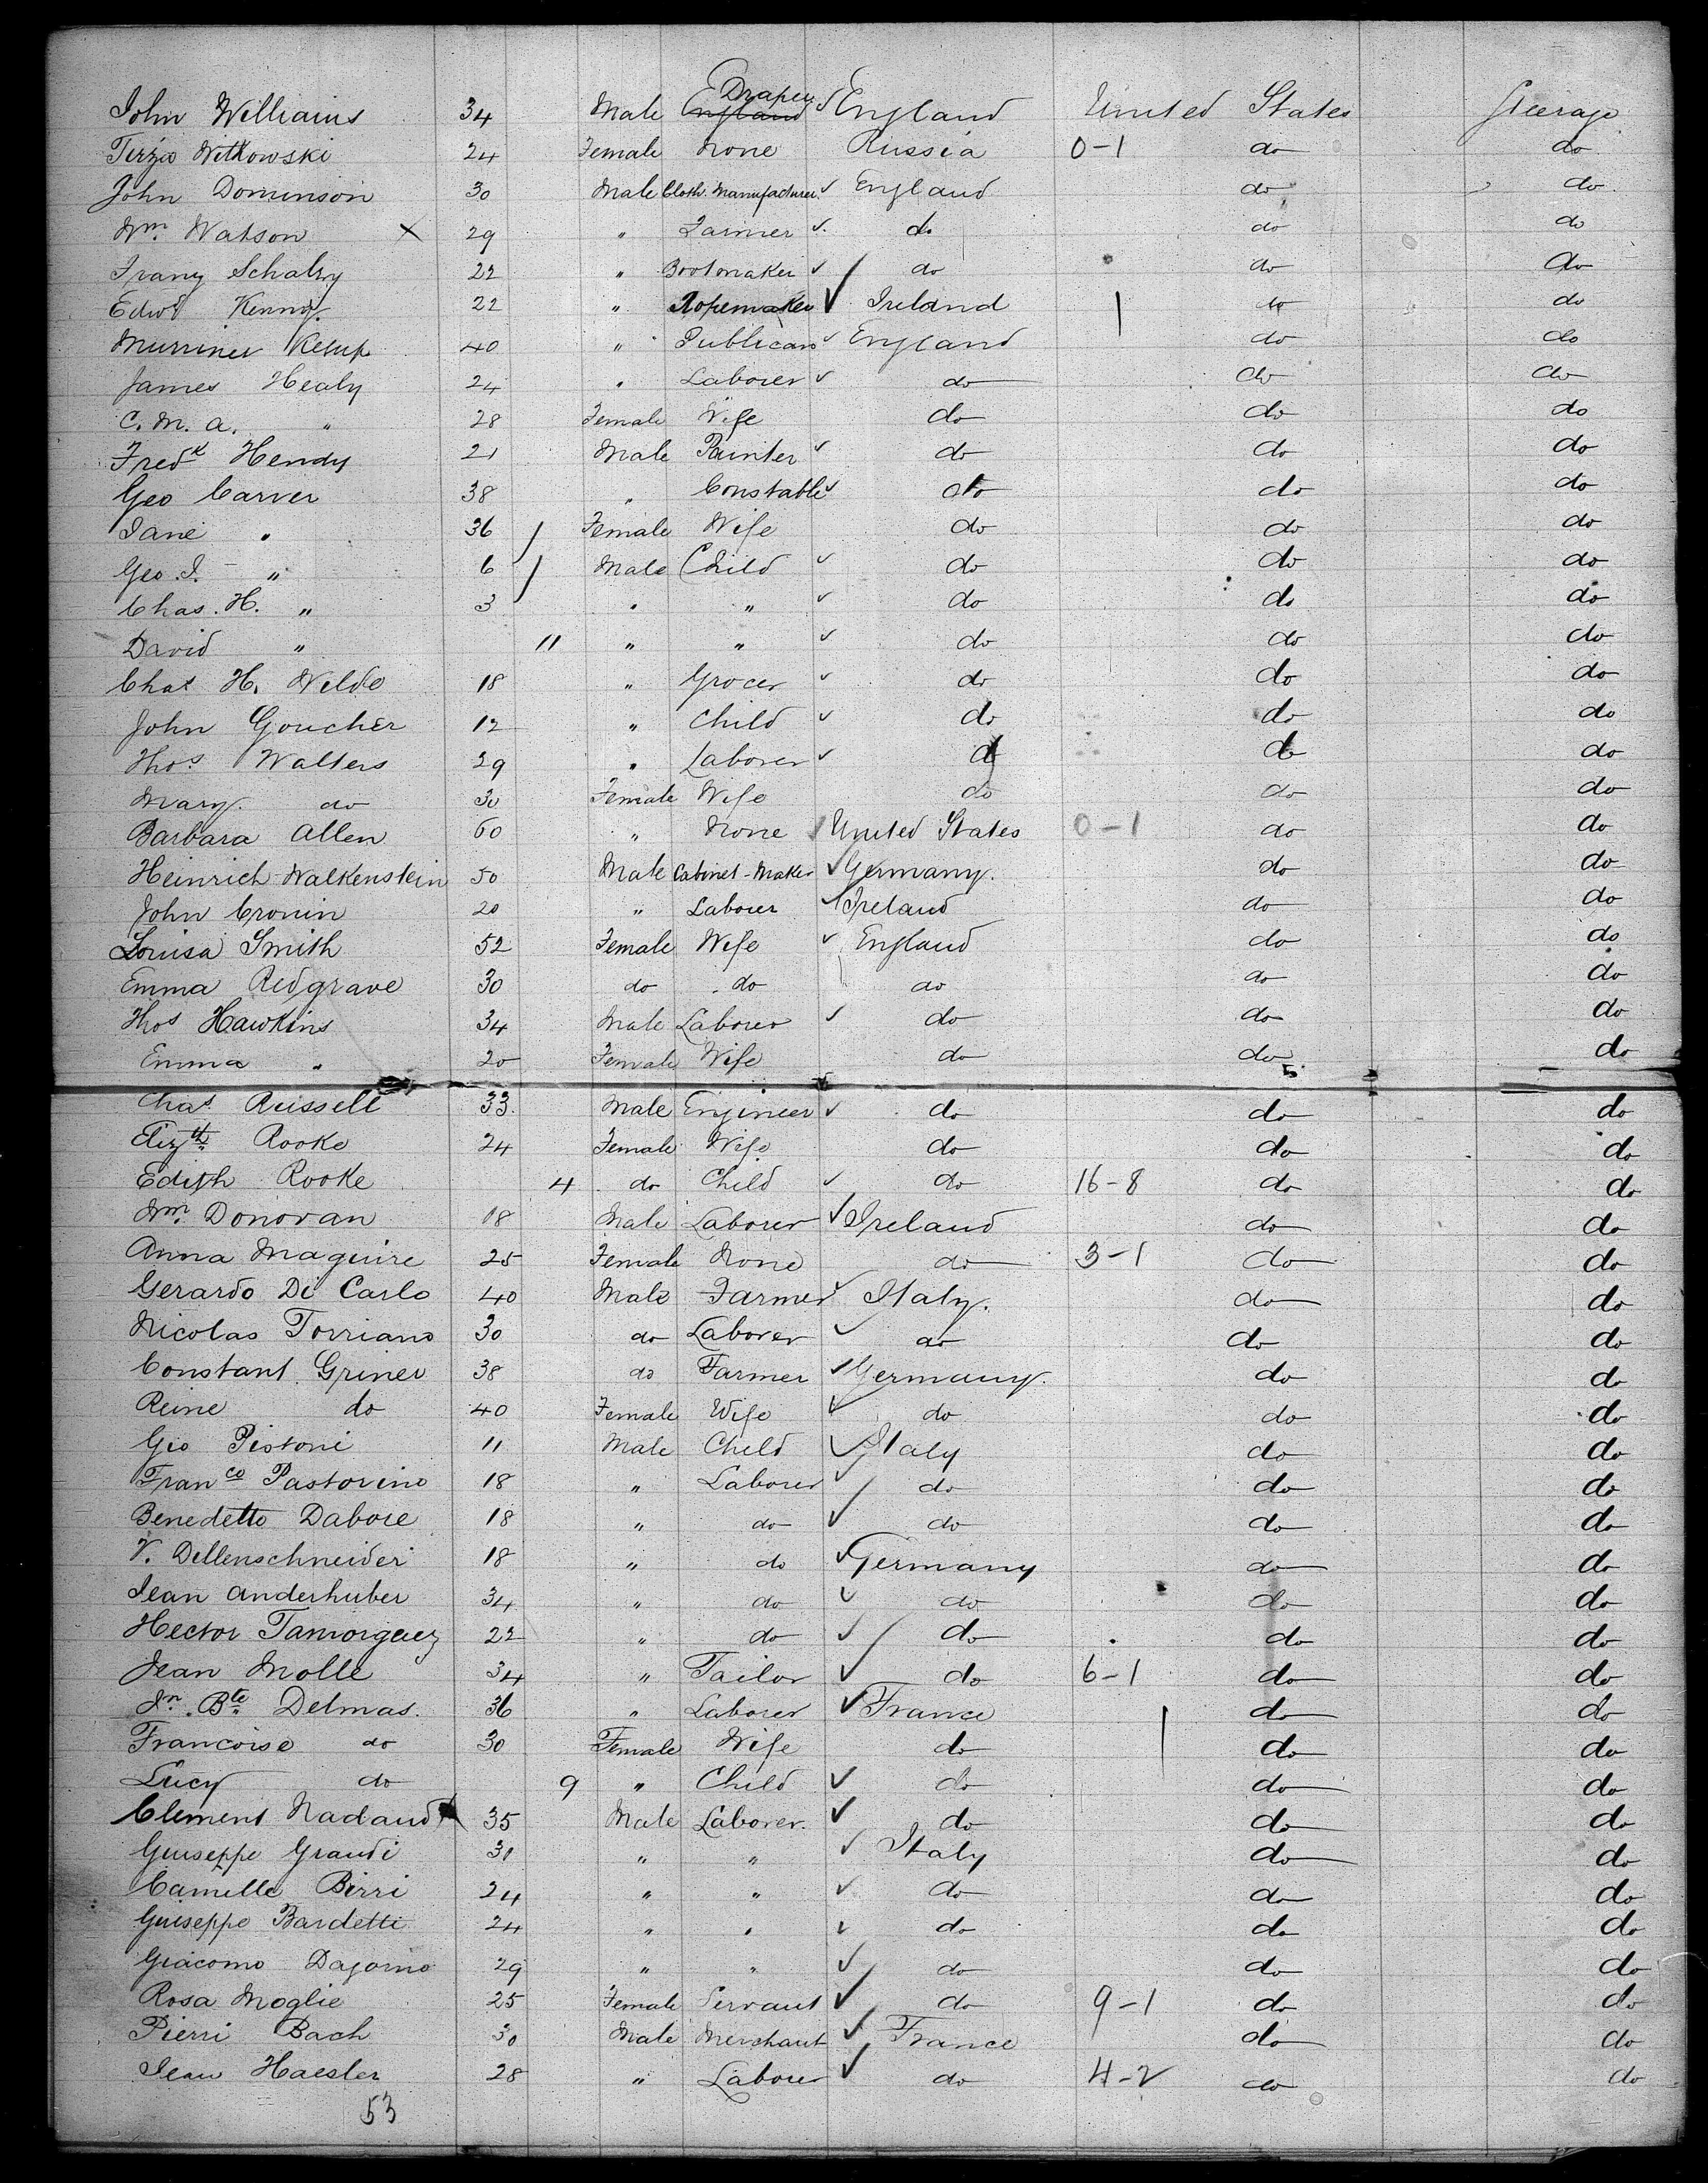 John Williams 34 Male England Draper England United States Steerage
Tirza Witkowski 24 Female None Russia 0-1 do do
John Dominson 30 Male Cloth Manufacturer England do do
Wm. Watson X 29 " Farmer do do do
Franz Schalzy 22 " Bootmaker do do do
Edwd Kenny 22 " Ropemaker Ireland do do
40 " Publican England do do
James Healy 24 " Laborer do do do
C. M. A. " 28 Female Wife do do do
Fredk Hendy 21 Male Painter do do do
Geo Carver 38 " Constable do do do
Jane " 36 Female Wife do do do
Geo. J. " 6 Male Child do do do
Chas. H. " 3 " " do do do
David " 11 " " do do do
Chas H. Weldo 18 " Grocer do do do
John Goucher 12 " Child do do do
Thos Walters 29 " Laborer do do do
Mary do 30 Female Wife do do do
Barbara Allen 60 " None United States 0-1 do do
Heinrich Walkenstein 50 Male Cabinet-Maker Germany. do do
John Cronin 20 " Laborer Ireland do do
Louisa Smith 52 Female Wife England do do
Emma Redgrave 30 do do do do do
Thos Hawkins 34 Male Laborer do do do
Emma " 20 Female Wife do do do
Chas Russell 33 Male Engineer do do do
Elizth Rooke 24 Female Wife do do do
Edith Rooke 4 do Child do 16-8 do do
Wm. Donovan 18 Male Laborer Ireland do do
Anna Maguire 25 Female None do 3-1 do do
Gerardo Di Carlo 40 Male Farmer Italy. do do
Nicolas Torriano 30 do Laborer do do do
Constant Griner 38 do Farmer Germany. do do
Reine do 40 Female Wife do do do
Gio Pistoni 11 Male Child Italy do do
Franco Pastorino 18 " Laborer do do do
Benedetto Dabore 18 " do do do do
V. Dellenschneider 18 " do Germany do do
Jean Anderhuber 34 " do do do do
Hector 22 " do do do do
Jean Molle 34 " Tailor do 6-1 do do
Jn. Bte. Delmas. 36 " Laborer France do do
Francoise do 30 Female Wife do do do
Lucy do 9 " Child do do do
Clement Nadaud 35 Male Laborer. do do do
Giuseppe Graudi 31 " " Italy do do
Camille Birri 24 " " do do do
Guiseppe Bardetti 24 " " do do do
Giacomo Dajorno 29 " " do do do
Rosa Moglie 25 Female Servant do 9-1 do do
Pierri Bach 30 Male Merchant France do do
Jean Haesler 28 " Laborer do 4-2 do do
53